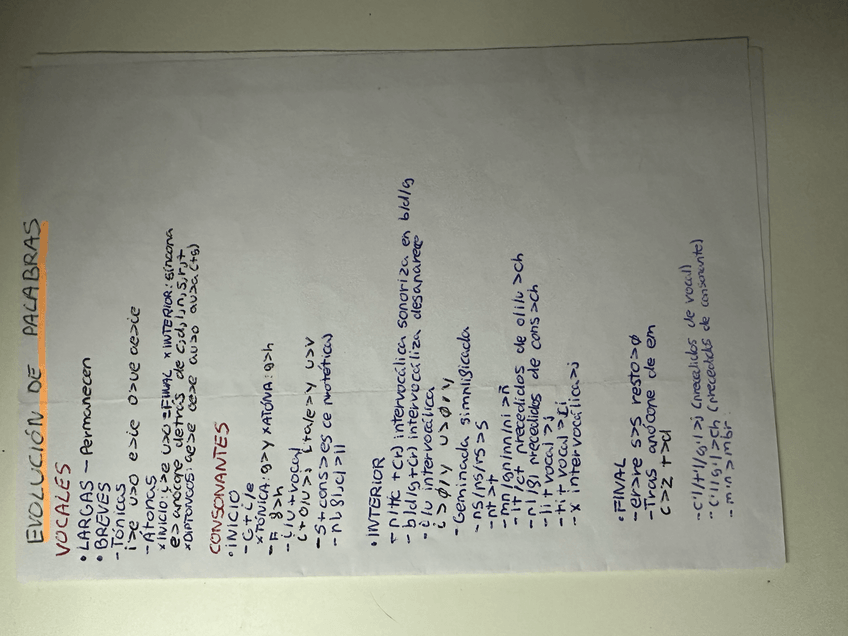 EVOLUCIÓN DE PALABRAS
VOCALES
• LARGAS - Permanecen
• BREVES
- Tónicas
i>e u>o e>ie o>ue ae>ie
- Atonas
x INICIO: i>e u>o = FINAL x INTERIOR: síncopa
e> apócope detrás de c,d,l,n,s,r,t
x DIPTONGOS: ae>e oe>e au>o au>a (tg)
CONSONANTES
• INICIO
- G+i/e
x TÓNICA: g>y x ATÓNA: g>h
- F g>h
- i/u+vocal
i+o/u>j i+a/e>y u>v
- S+cons>es (e protética)
- pl,cl>ll
• INTERIOR
- p/t/c +(r) intervocálica sonoriza en b/d/g
- b/d/g+(r) intervocáliza desaparece
- i/u intervocálica
i>ø/y u>ø/v
- Geminada simplificada
- ns/ps/rs>s
- pt>t
- mn/gn/nn/ni>ñ
- lt/ct precedidos de o/i/u>ch
- pl precedidos de cons>ch
- li+vocal>j
- ti+vocal>z
- x intervocálica>j
• FINAL
- er>re s>s resto>ø
- Tras apócope de e
c>z t>d
- c'l/t'l/g'l>j (precedidos de vocal)
- c'l/g'l>ch (precedidos de consonante)
- m'n>mbr